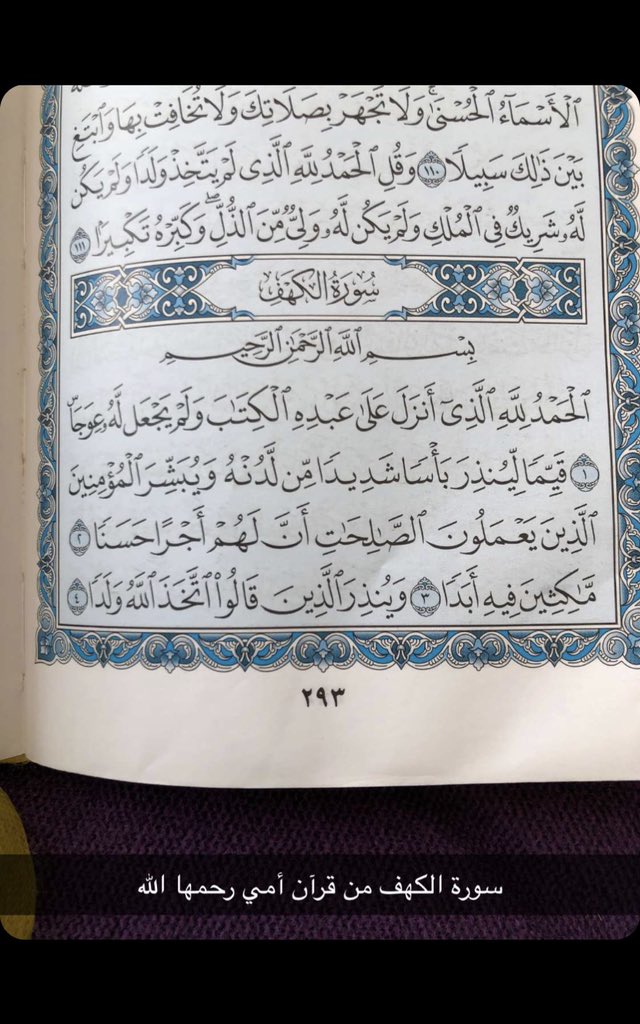 ٱلۡأَسۡمَآءُ ٱلۡحُسۡنَىٰۚ وَلَا تَجۡهَرۡ بِصَلَاتِكَ وَلَا تُخَافِتۡ بِهَا وَٱبۡتَغِ
بَيۡنَ ذَٰلِكَ سَبِيلٗا ١١٠ وَقُلِ ٱلۡحَمۡدُ لِلَّهِ ٱلَّذِي لَمۡ يَتَّخِذۡ وَلَدٗا وَلَمۡ يَكُن
لَّهُۥ شَرِيكٞ فِي ٱلۡمُلۡكِ وَلَمۡ يَكُن لَّهُۥ وَلِيّٞ مِّنَ ٱلذُّلِّۖ وَكَبِّرۡهُ تَكۡبِيرَۢا ١١١
سُورَةُ الكَهۡفِ
بِسۡمِ ٱللَّهِ ٱلرَّحۡمَٰنِ ٱلرَّحِيمِ
ٱلۡحَمۡدُ لِلَّهِ ٱلَّذِيٓ أَنزَلَ عَلَىٰ عَبۡدِهِ ٱلۡكِتَٰبَ وَلَمۡ يَجۡعَل لَّهُۥ عِوَجَاۜ
١ قَيِّمٗا لِّيُنذِرَ بَأۡسٗا شَدِيدٗا مِّن لَّدُنۡهُ وَيُبَشِّرَ ٱلۡمُؤۡمِنِينَ
ٱلَّذِينَ يَعۡمَلُونَ ٱلصَّٰلِحَٰتِ أَنَّ لَهُمۡ أَجۡرًا حَسَنٗا ٢
مَّٰكِثِينَ فِيهِ أَبَدٗا ٣ وَيُنذِرَ ٱلَّذِينَ قَالُواْ ٱتَّخَذَ ٱللَّهُ وَلَدٗا ٤
٢٩٣
سورة الكهف من قرآن أمي رحمها الله